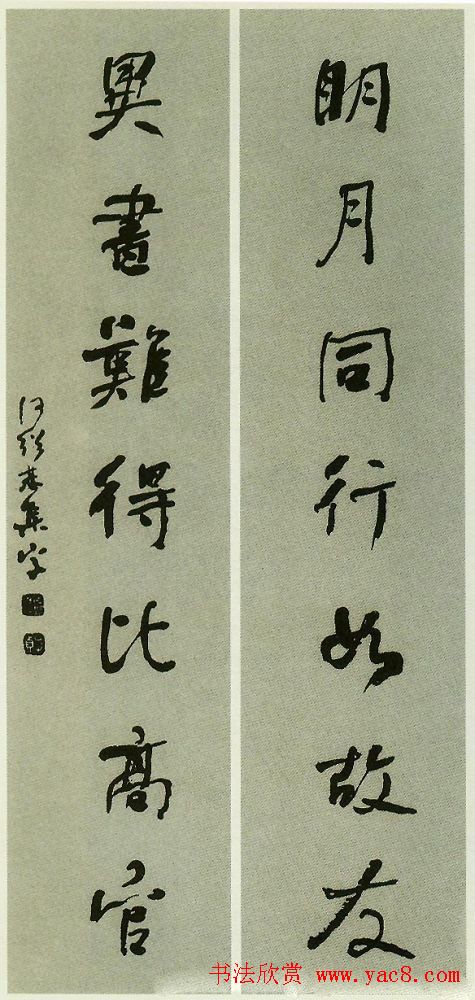 明月同行如故友
異書難得比高官
何紹基集字
书法欣赏 www.yac8.com